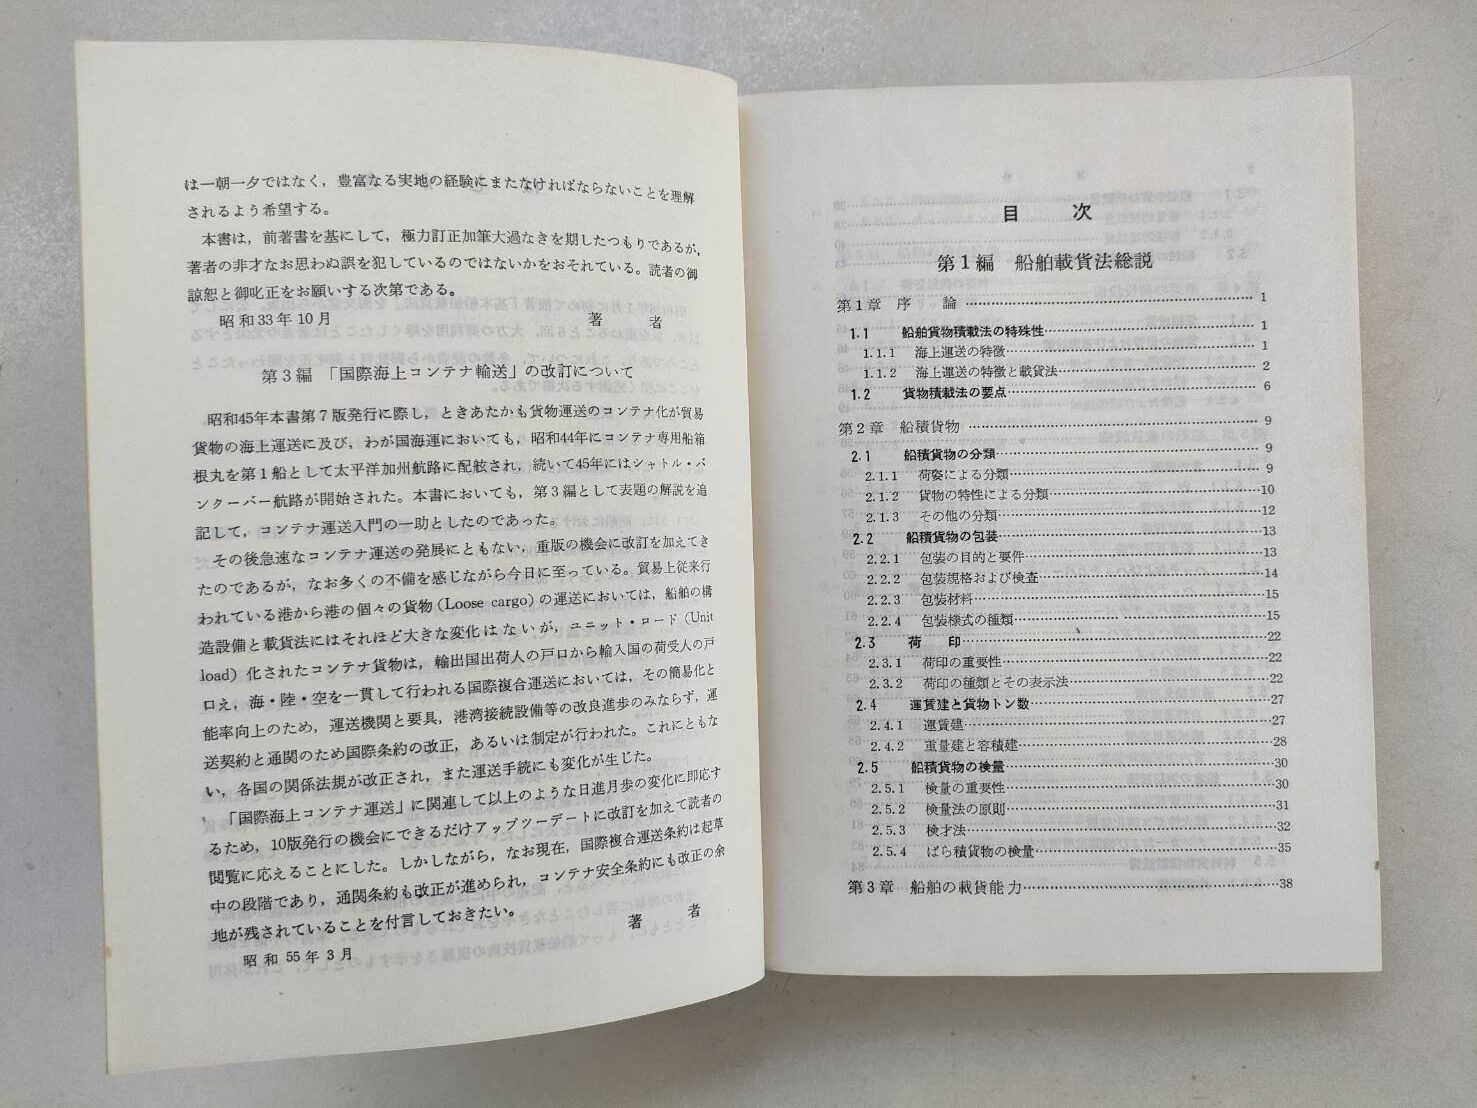 は一朝一夕ではなく，豊富なる実地の経験にまたなければならないことを理解
されるよう希望する。
本書は，前著書を基にして，極力訂正加筆大過なきを期したつもりであるが，
著者の非才なお思わぬ誤を犯しているのではないかをおそれている。読者の御
諒恕と御叱正をお願いする次第である。
昭和33年10月 著 者
第3編 「国際海上コンテナ輸送」の改訂について
昭和45年本書第7版発行に際し，ときあたかも貨物運送のコンテナ化が貿易
貨物の海上運送に及び，わが国海運においても，昭和44年にコンテナ専用船箱
根丸を第1船として太平洋加州航路に配舷され，続いて45年にはシャトル・バ
ンクーバー航路が開始された。本書においても，第3編として表題の解説を追
記して，コンテナ運送入門の一助としたのであった。
その後急速なコンテナ運送の発展にともない，重版の機会に改訂を加えてき
たのであるが，なお多くの不備を感じながら今日に至っている。貿易上従来行
われている港から港の個々の貨物（Loose cargo）の運送においては，船舶の構
造設備と載貨法にはそれほど大きな変化はないが，ユニット・ロード（Unit
load）化されたコンテナ貨物は，輸出国出荷人の戸口から輸入国の荷受人の戸
口え，海・陸・空を一貫して行われる国際複合運送においては，その簡易化と
能率向上のため，運送機関と要具，港湾接続設備等の改良進歩のみならず，運
送契約と通関のため国際条約の改正，あるいは制定が行われた。これにともな
い，各国の関係法規が改正され，また運送手続にも変化が生じた。
「国際海上コンテナ運送」に関連して以上のような日進月歩の変化に即応す
るため，10版発行の機会にできるだけアップツーデートに改訂を加えて読者の
閲覧に応えることにした。しかしながら，なお現在，国際複合運送条約は起草
中の段階であり，通関条約も改正が進められ，コンテナ安全条約にも改正の余
地が残されていることを付言しておきたい。
昭和55年3月 著 者
目 次
第1編 船舶載貨法総説
第1章 序 論 …… 1
1.1 船舶貨物積載法の特殊性 …… 1
1.1.1 海上運送の特徴 …… 1
1.1.2 海上運送の特徴と載貨法 …… 2
1.2 貨物積載法の要点 …… 6
第2章 船積貨物 …… 9
2.1 船積貨物の分類 …… 9
2.1.1 荷姿による分類 …… 9
2.1.2 貨物の特性による分類 …… 10
2.1.3 その他の分類 …… 12
2.2 船積貨物の包装 …… 13
2.2.1 包装の目的と要件 …… 13
2.2.2 包装規格および検査 …… 14
2.2.3 包装材料 …… 15
2.2.4 包装様式の種類 …… 15
2.3 荷 印 …… 22
2.3.1 荷印の重要性 …… 22
2.3.2 荷印の種類とその表示法 …… 22
2.4 運賃建と貨物トン数 …… 27
2.4.1 運賃建 …… 27
2.4.2 重量建と容積建 …… 28
2.5 船積貨物の検量 …… 30
2.5.1 検量の重要性 …… 30
2.5.2 検量法の原則 …… 31
2.5.3 検才法 …… 32
2.5.4 ばら積貨物の検量 …… 35
第3章 船舶の載貨能力 …… 38